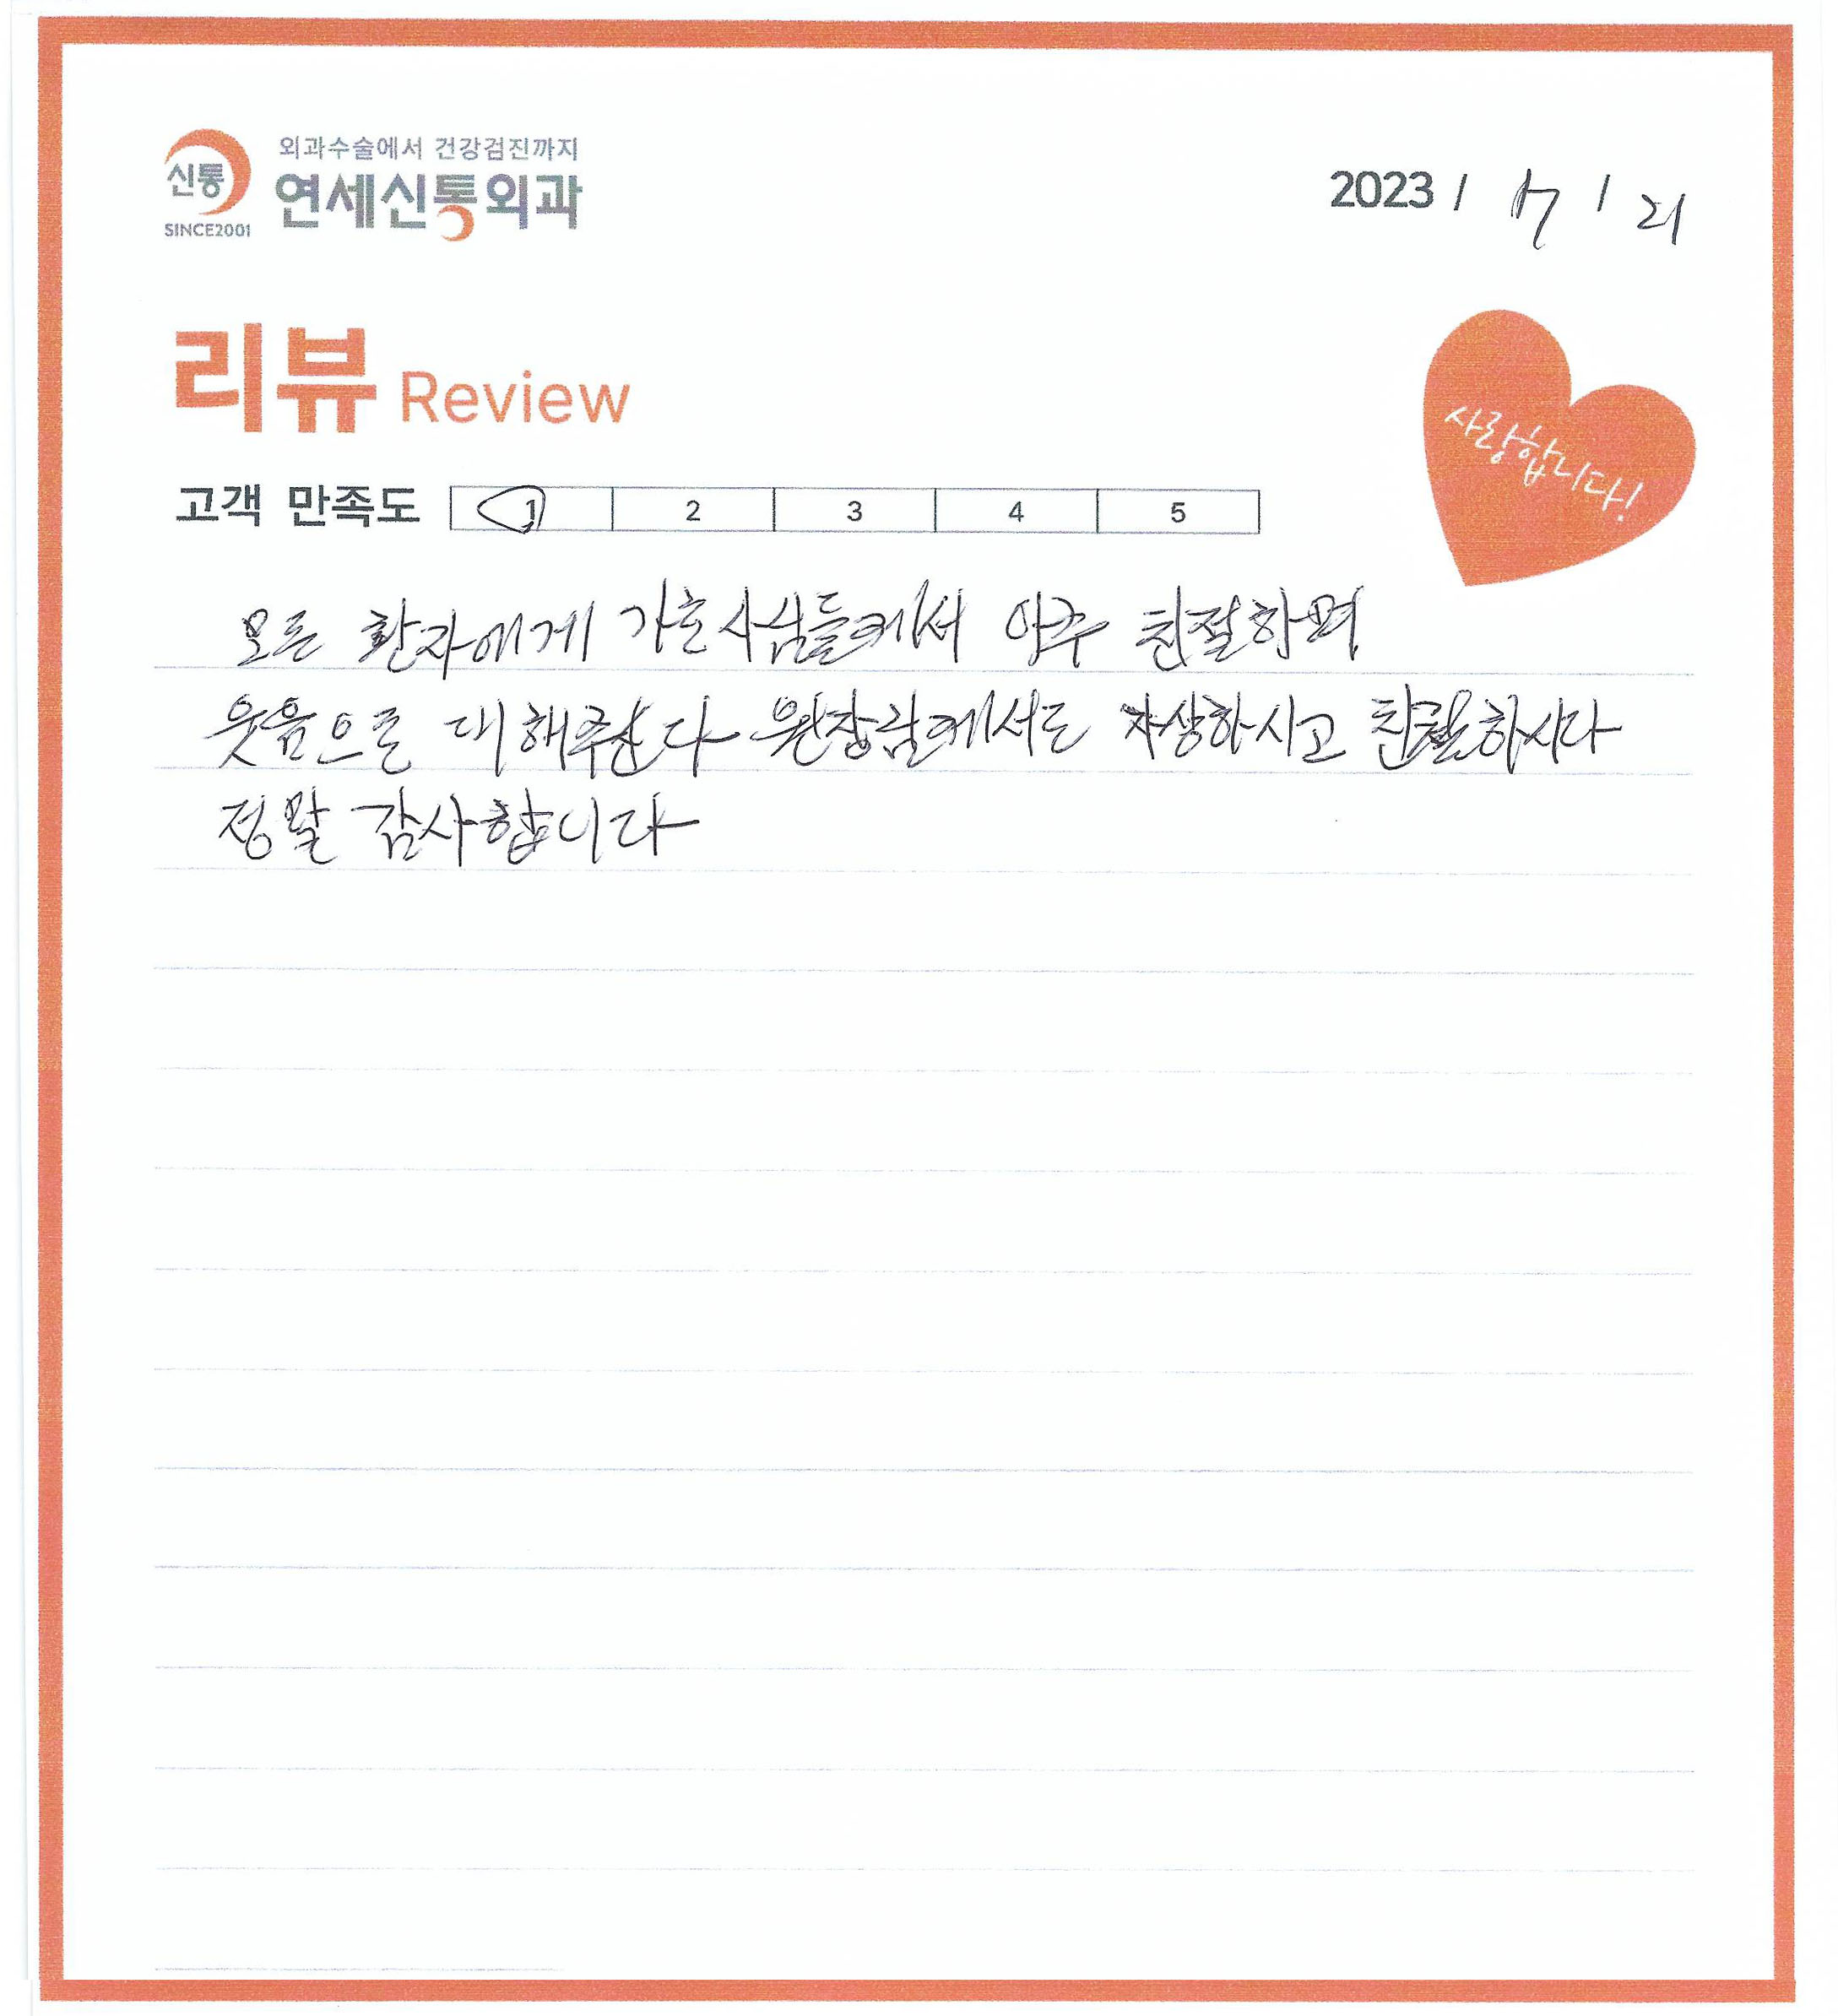 신통
SINCE2001
외과수술에서 건강검진까지
연세신통외과
2023 / 7 / 21
리뷰 Review
사랑합니다!
고객 만족도 1 2 3 4 5
모든 환자에게 가호사님들께서 아주 친절하며
웃음으로 대해주신다 원장님께서도 자상하시고 친절하시다
정말 감사합니다